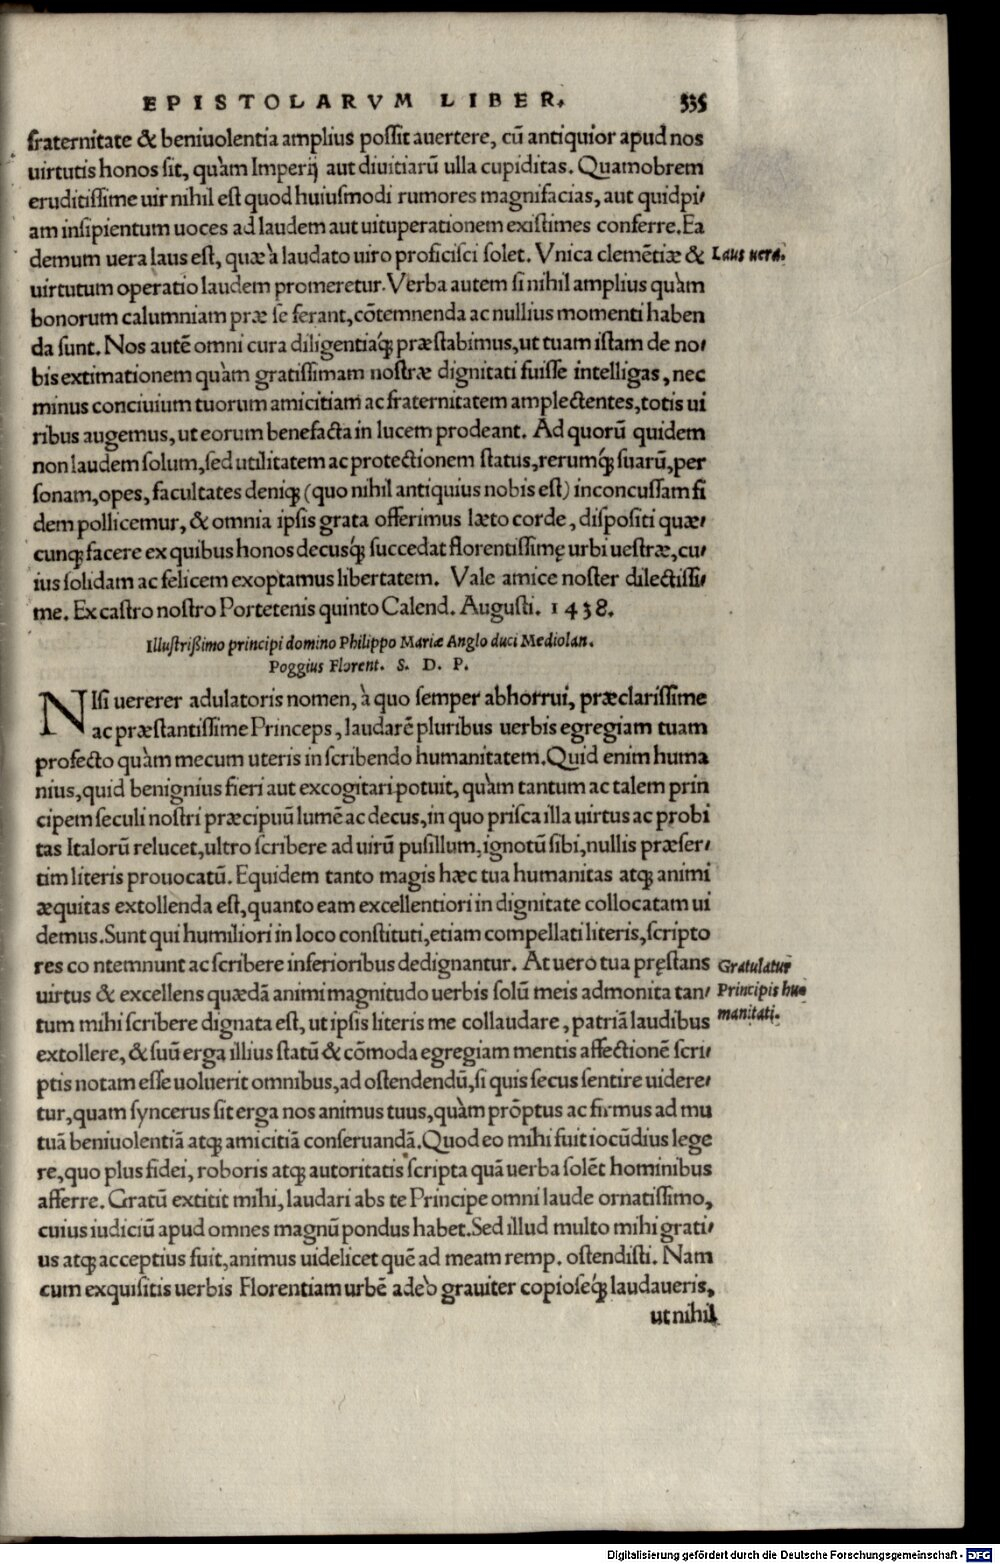 EPISTOLARVM LIBER. 335
fraternitate & beniuolentia amplius possit auertere, cū antiquior apud nos
uirtutis honos sit, quàm Imperij aut diuitiarū ulla cupiditas. Quamobrem
eruditissime uir nihil est quod huiusmodi rumores magnifacias, aut quidpi-
am insipientum uoces ad laudem aut uituperationem existimes conferre. Ea
demum uera laus est, quæ à laudato uiro proficisci solet. Vnica clemētiæ & Laus uera.
uirtutum operatio laudem promeretur. Verba autem si nihil amplius quàm
bonorum calumniam præ se ferant, cōtemnenda ac nullius momenti haben
da sunt. Nos autē omni cura diligentiáq; præstabimus, ut tuam istam de no-
bis extimationem quàm gratissimam nostræ dignitati fuisse intelligas, nec
minus conciuium tuorum amicitiam ac fraternitatem amplectentes, totis ui
ribus augemus, ut eorum benefacta in lucem prodeant. Ad quorū quidem
non laudem solum, sed utilitatem ac protectionem status, rerumq́; suarū, per
sonam, opes, facultates deniq; (quo nihil antiquius nobis est) inconcussam fi
dem pollicemur, & omnia ipsis grata offerimus læto corde, dispositi quæ-
cunq; facere ex quibus honos decusq́; succedat florentissimę urbi uestræ, cu-
ius solidam ac felicem exoptamus libertatem. Vale amice noster dilectissi-
me. Ex castro nostro Portetenis quinto Calend. Augusti. 1438.
Illustrißimo principi domino Philippo Mariæ Anglo duci Mediolan.
Poggius Florent. S. D. P.
NIsi uererer adulatoris nomen, à quo semper abhorrui, præclarissime
ac præstantissime Princeps, laudarē pluribus uerbis egregiam tuam
profecto quàm mecum uteris in scribendo humanitatem. Quid enim huma
nius, quid benignius fieri aut excogitari potuit, quàm tantum ac talem prin
cipem seculi nostri præcipuū lumē ac decus, in quo prisca illa uirtus ac probi
tas Italorū relucet, ultro scribere ad uirū pusillum, ignotū sibi, nullis præser-
tim literis prouocatū. Equidem tanto magis hæc tua humanitas atq; animi
æquitas extollenda est, quanto eam excellentiori in dignitate collocatam ui
demus. Sunt qui humiliori in loco constituti, etiam compellati literis, scripto
res co ntemnunt ac scribere inferioribus dedignantur. At uero tua pręstans Gratulatur
uirtus & excellens quædā animi magnitudo uerbis solū meis admonita tan- Principis hu-
tum mihi scribere dignata est, ut ipsis literis me collaudare, patriā laudibus manitati.
extollere, & suū erga illius statū & cōmoda egregiam mentis affectionē scri-
ptis notam esse uoluerit omnibus, ad ostendendū, si quis secus sentire uidere-
tur, quam syncerus sit erga nos animus tuus, quàm prōptus ac firmus ad mu
tuā beniuolentiā atq; amicitiā conseruandā. Quod eo mihi fuit iocūdius lege
re, quo plus fidei, roboris atq; autoritatis scripta quā uerba solēt hominibus
afferre. Gratū extitit mihi, laudari abs te Principe omni laude ornatissimo,
cuius iudiciū apud omnes magnū pondus habet. Sed illud multo mihi grati-
us atq; acceptius fuit, animus uidelicet quē ad meam remp. ostendisti. Nam
cum exquisitis uerbis Florentiam urbē adeò grauiter copioseq́; laudaueris,
ut nihil
Digitalisierung gefördert durch die Deutsche Forschungsgemeinschaft - DFG